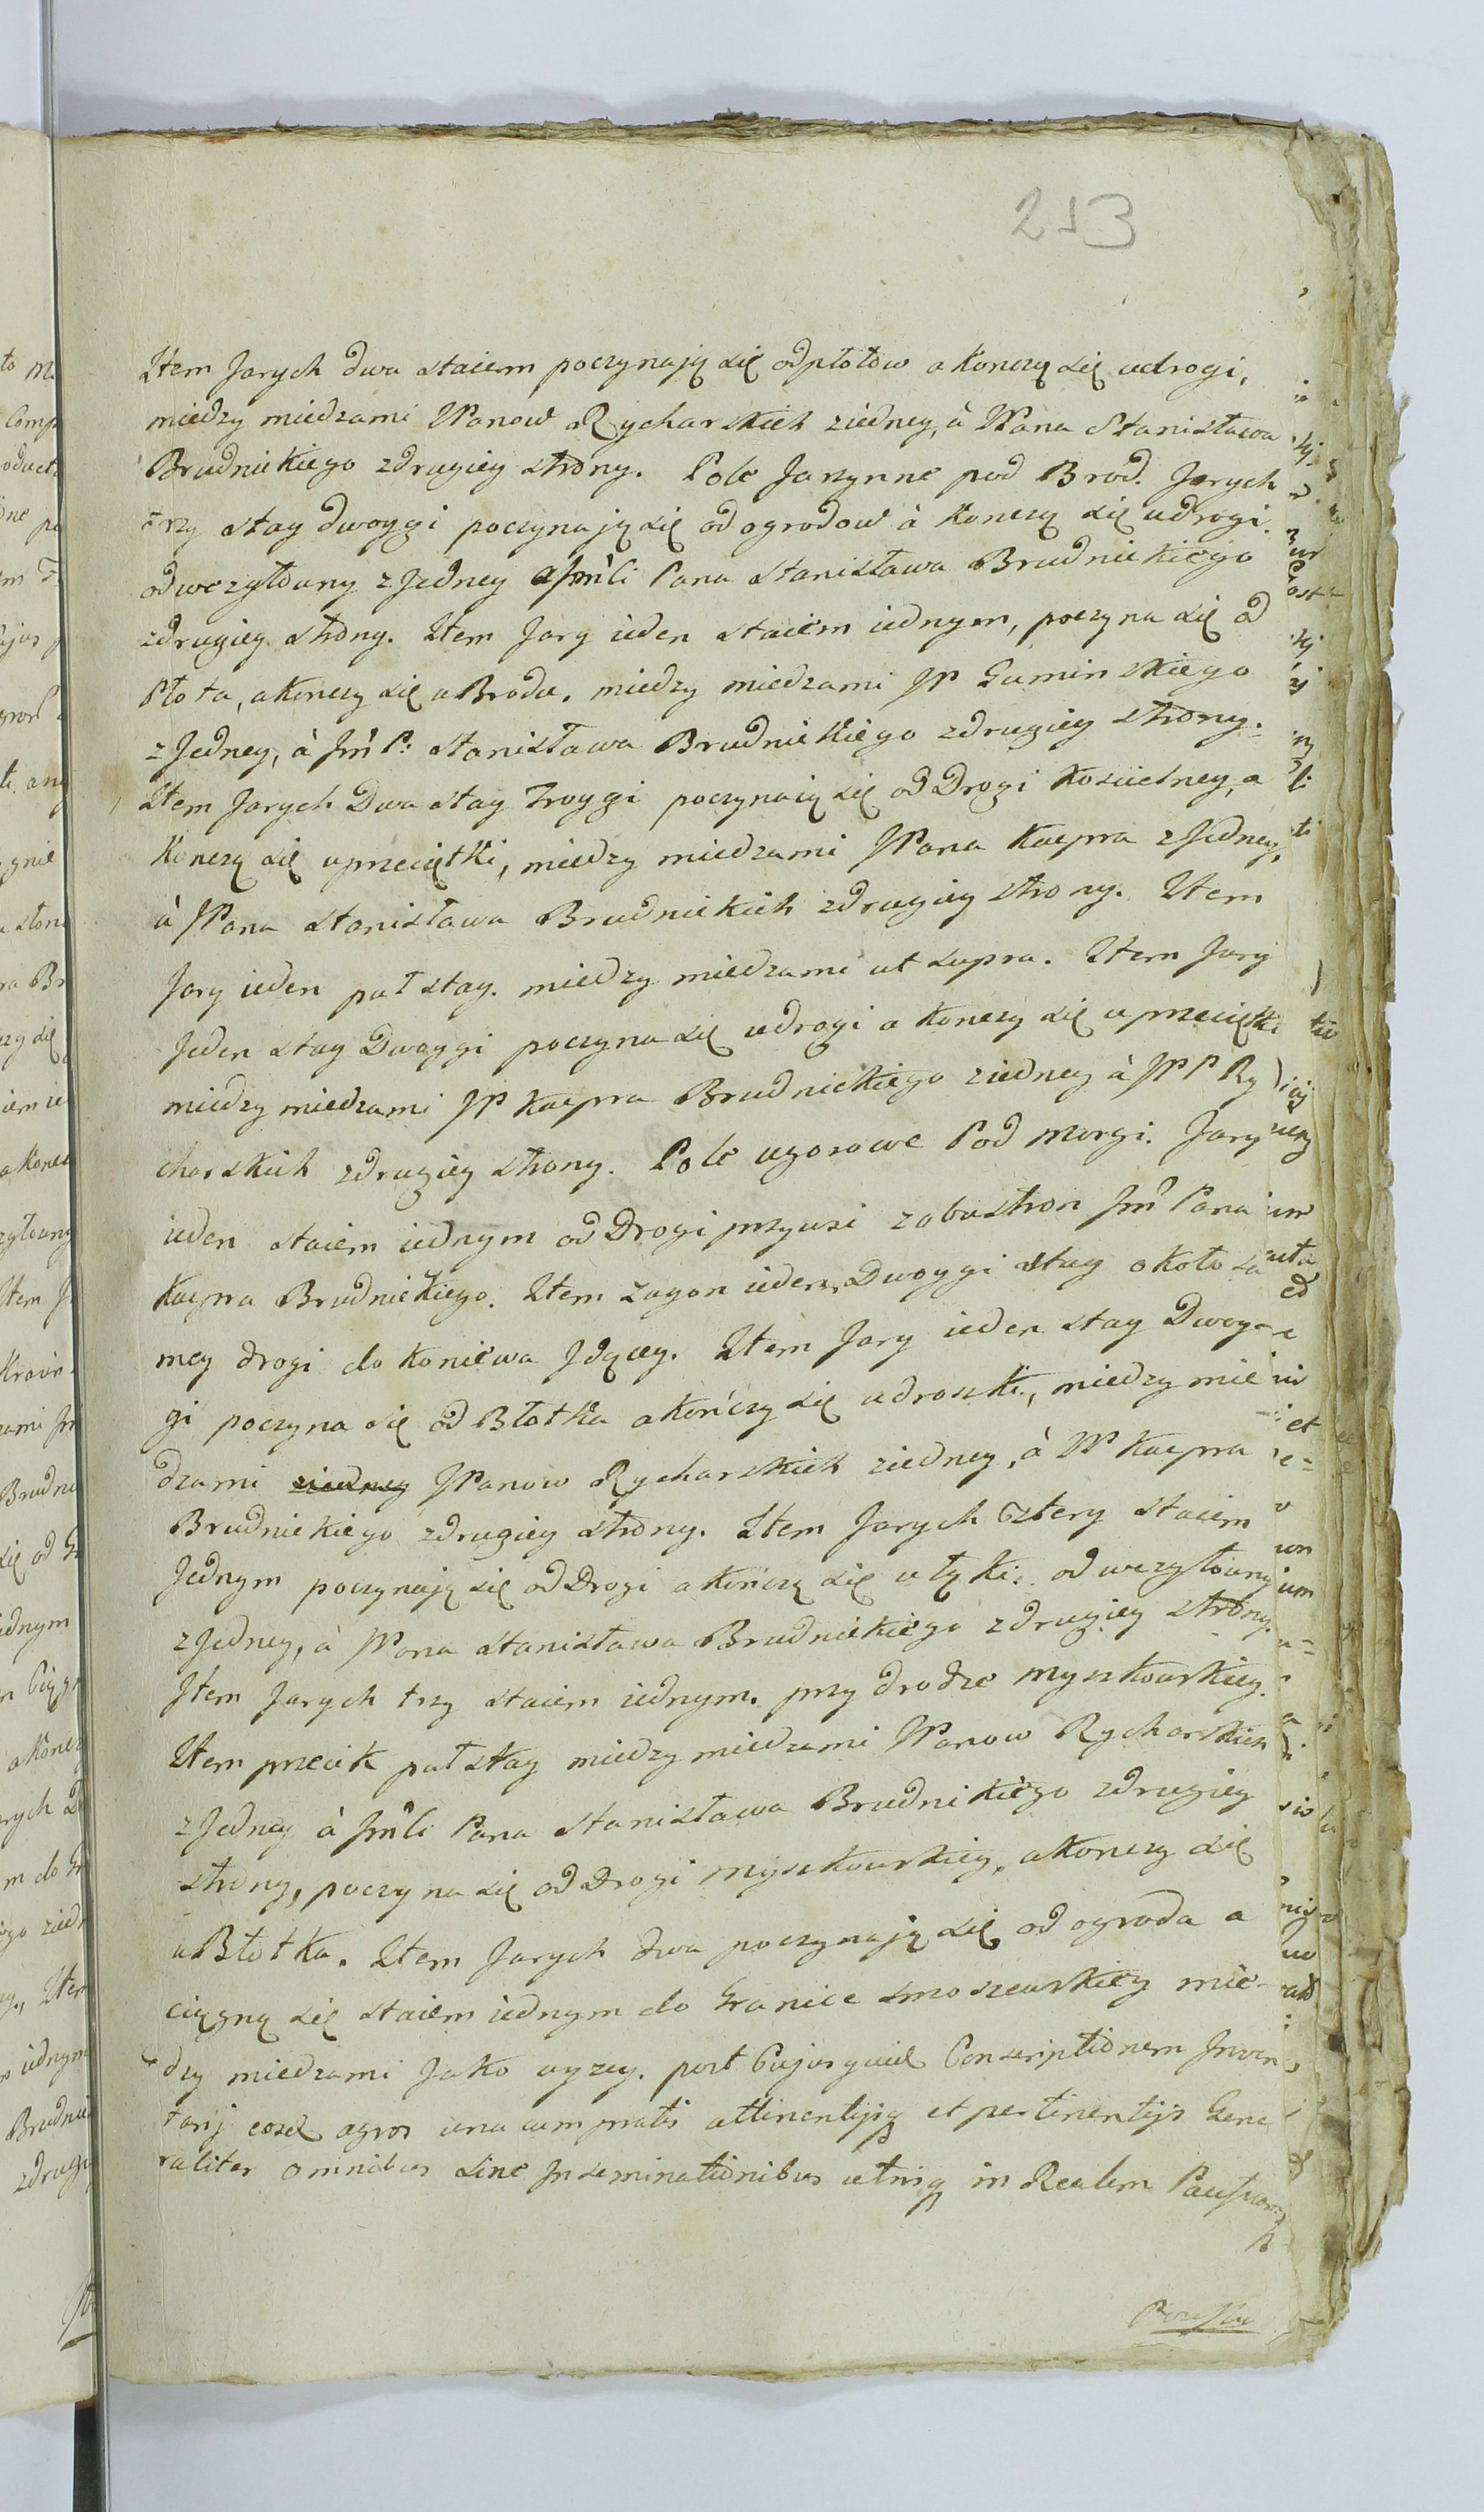 213
Item Jarych dwa staiem poczynaią się odpłotow a Konczą się udrogi,
miedzy miedzami JPanow Rycharskich ziedney, à JPana Stanisława
Brudnickiego zdrugiey strony. Pole Jarzynne pod Brod. Jarych
trzy stay dwoygi poczynaią się od ogrodow à Konczą się udrogi.
odwczyłouny z Jedney a Jmci Pana Stanisława Brudnickiego
zdrugiey strony. Item Jary ieden staiem iednym, poczyna się od
Płota, a Konczy się u Brodu. miedzy miedzami JP Guminskiego
z Jedney, à Jm P: Stanisława Brudnickiego zdrugiey strony.
Item Jarych Dwa stay Troygi poczynaią się od Drogi Koscielney, a
Konczą się uprzeciątki, miedzy miedzami JPana Kacpra z Jedney,
à JPana Stanisława Brudnickich zdrugiey strony. Item
Jary ieden puł stay. miedzy miedzami ut supra. Item Jary
Jeden stay Dwoygi poczyna się udrogi a Konczy się uprzeciątki
miedzy miedzami JP Kacpra Brudnickiego ziedney à JPP Ry
charskich zdrugiey strony. Pole ugorowe Pod Morgi. Jary
ieden staiem iednym od Drogi przyusi zobustron Jm Pana
Kacpra Brudnickiego. Item Zagon ieden, Dwoygi stay około sa
mey drogi do Koniewa Jdącey. Item Jary ieden stay Dwoy-
gi poczyna się od Błotka a Kończy się udroszki, miedzy mie
dzami ziedney JPanow Rycharskich ziedney, à JP Kacpra
Brudnickiego zdrugiey strony. Item Jarych Cztery staiem
Jednym poczynaią się od Drogi a Kończą się u łyki. od wczyłouny
z Jedney, à JPana Stanisława Brudnickiego zdrugiey strony.
Item Jarych trzy staiem iednym. przy drodze Myszkowskiey.
Item przecik puł stay miedzy miedzami JPanow Rycharskich
z Jedney à Jmci Pana Stanisława Brudnickiego zdrugiey
strony, poczyna się od Drogi Myszkowskiey, a Konczy się
u Błotka. Item Jarych dwa poczynaią się od ogroda a
ciągną się staiem iednym do Granice Smoszewskiey mie-
dzy miedzami Jako wyzey. post Cujusquid Conscriptionem Inven
tarij eosd agros una cum pratis attinentijsq et pertinentijs Gene
raliter omnibus sine Inseminationibus utrisq in Realem